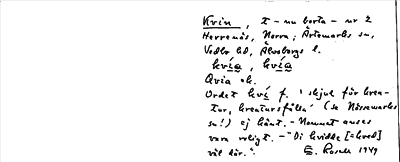 Kvin, t-nu borta - nr 2
Herrenäs, Norra; Ärtemarks sn,
Vedbo hd, Älvsborgs l.
kvía, kvía
Qvia ok.
Ordet kví f. 'skjul för krea-
tur, kreatursfålla' (se Nössemarks
sn!) ej känt. - Namnet anses
vara roligt. - "Di kvidde [=hred]
väl där.". E. Rosell 1949